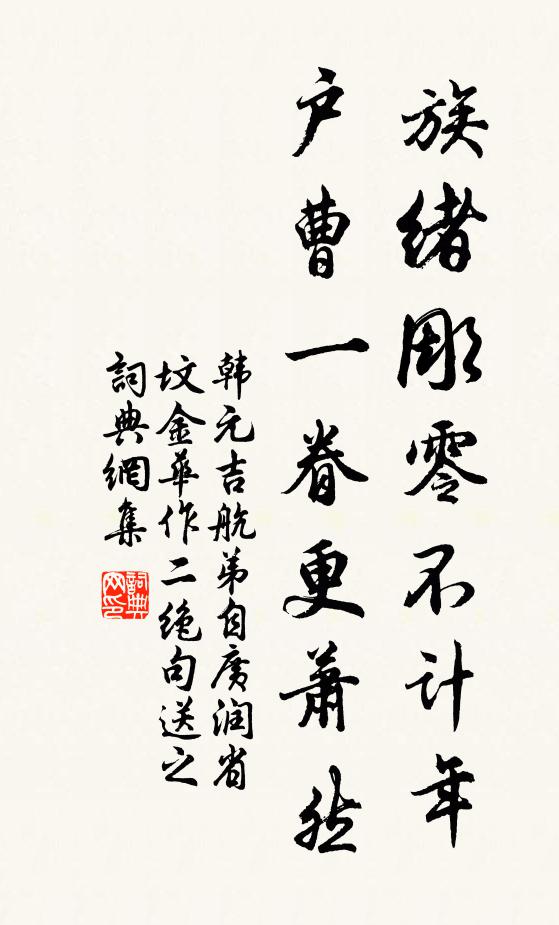 族緒彫零不计年
户曹一眷更蕭然
韩元吉航弟自廣润省
坟金華作二绝句送之
詞典網集
詞典网印